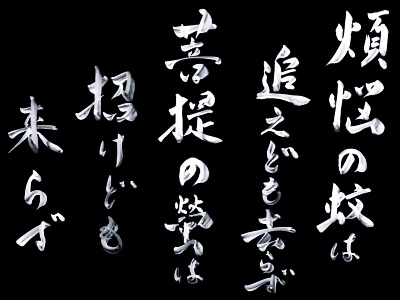 煩悩の蚊は
追えども去らず
菩提の螢は
招けども
来らず